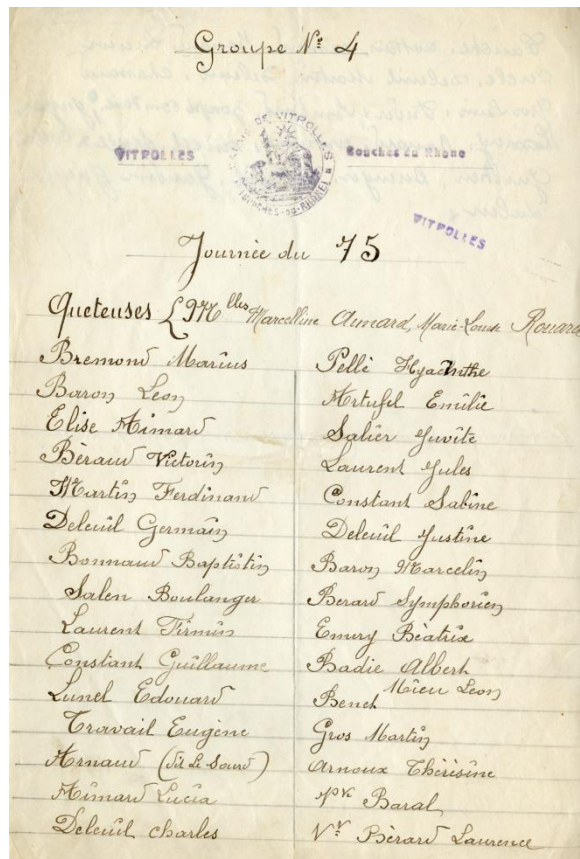 Groupe Nº 4
MAIRIE DE VITROLLES
(BOUCHES-DU-RHONE)
VITROLLES
Bouches du Rhone
VITROLLES
Journée du 75
Queteuses Mlles Marcelline Aimard, Marie-Louise Rouard
Bremond Marius
Baron Leon
Elise Aimard
Béraud Victorin
Martin Ferdinand
Deleuil Germain
Bonnaud Baptistin
Salen Boulanger
Laurent Firmin
Constant Guillaume
Lunel Edouard
Travail Eugène
Arnaud (dit Le Sourd)
Aimard Lucia
Deleuil charles
Pellé Hyacinthe
Artufel Emilie
Salier Juvite
Laurent Jules
Constant Sabine
Deleuil Justine
Baron Marcelin
Berard Symphorien
Emery Béatrix
Badie Albert
Benet Mieu Leon
Gros Martin
Arnoux Thérisine
Baral
Vve Bérard Laurence